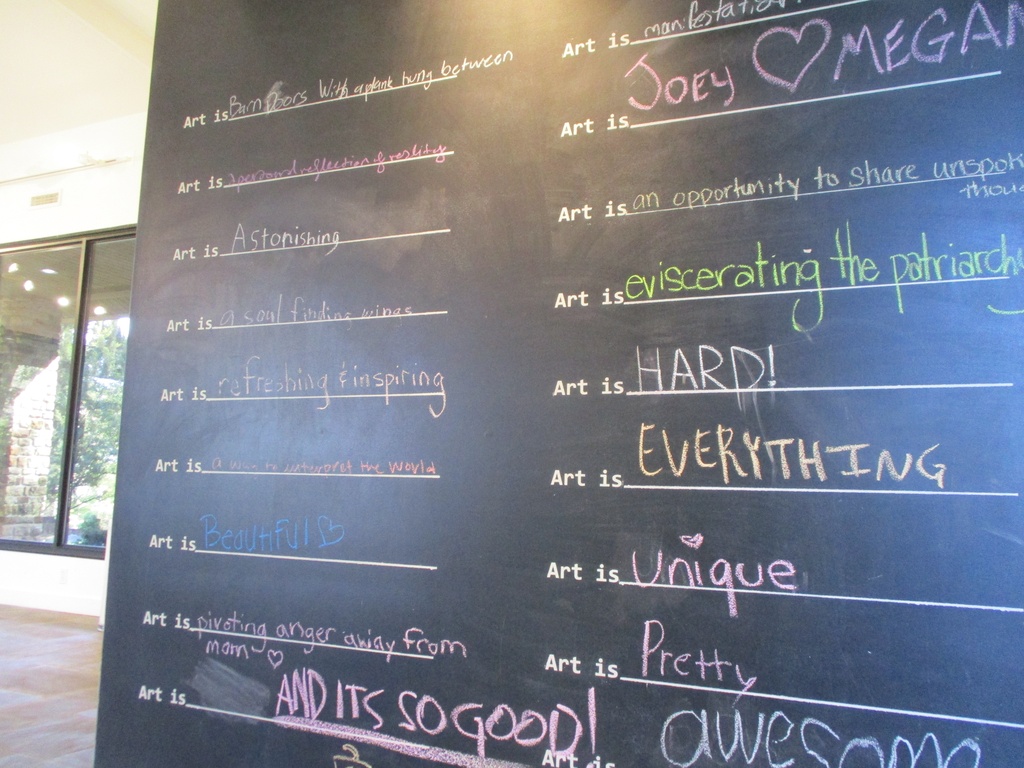 Art is Barn Doors With a plank hung between
Art is a personal reflection of reality
Art is Astonishing
Art is a soul finding wings
Art is refreshing & inspiring
Art is a way to interpret the world
Art is Beautiful ♡
Art is pivoting anger away from
mom ♡
Art is AND ITS SO GOOD!
Art is manifestati
Art is JOEY ♡ MEGAN
Art is an opportunity to share unspok
thou
Art is eviscerating the patriarchy
Art is HARD!
Art is EVERYTHING
Art is Unique
Art is Pretty
Art is awesome